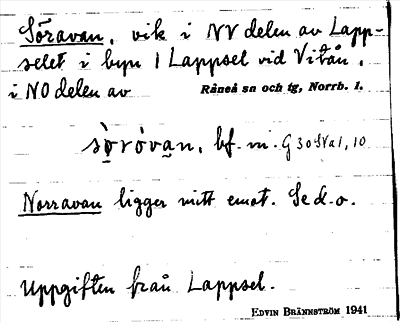 Söravan, vik i NV delen av Lapp-
selet i byn 1 Lappsel vid Vitån,
i NO delen av Råneå sn och tg, Norrb. l.
sọ̀rȯ́va̱n, bf. m. G 30 SVa1, 10
Norravan ligger mitt emot. Se d. o.
Uppgiften från Lappsel.
EDVIN BRÄNNSTRÖM 1941